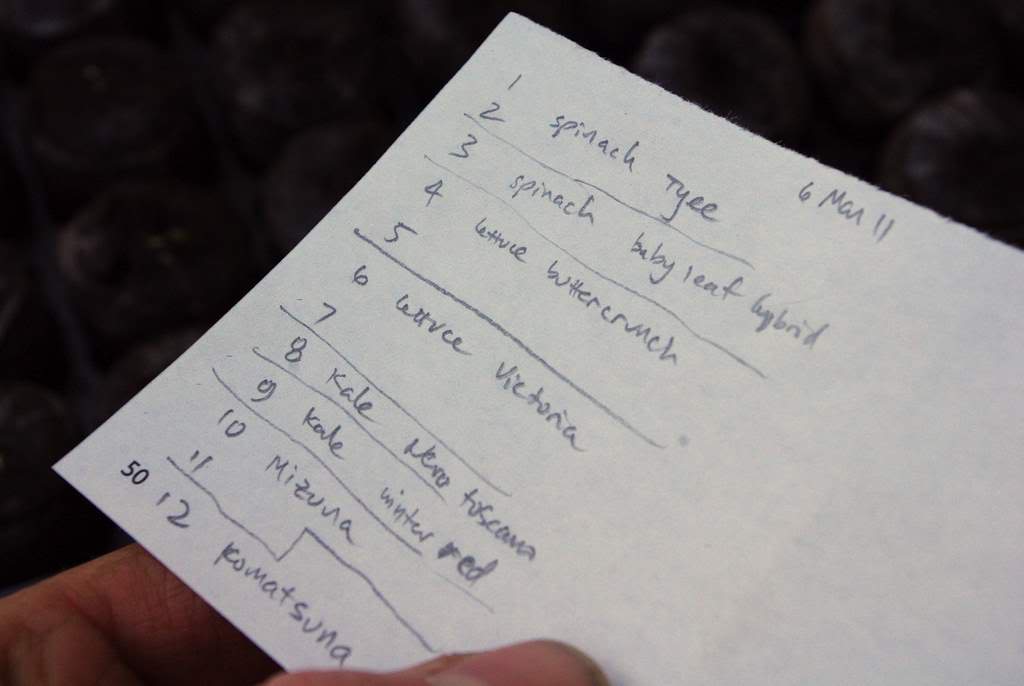 1
2 spinach Tyee 6 Mar 11
3 spinach baby leaf hybrid
4 lettuce buttercrunch
5
6 lettuce Victoria
7
8 Kale Nero toscana
9 Kale winter red
10 Mizuna
11
12 Komatsuna
50